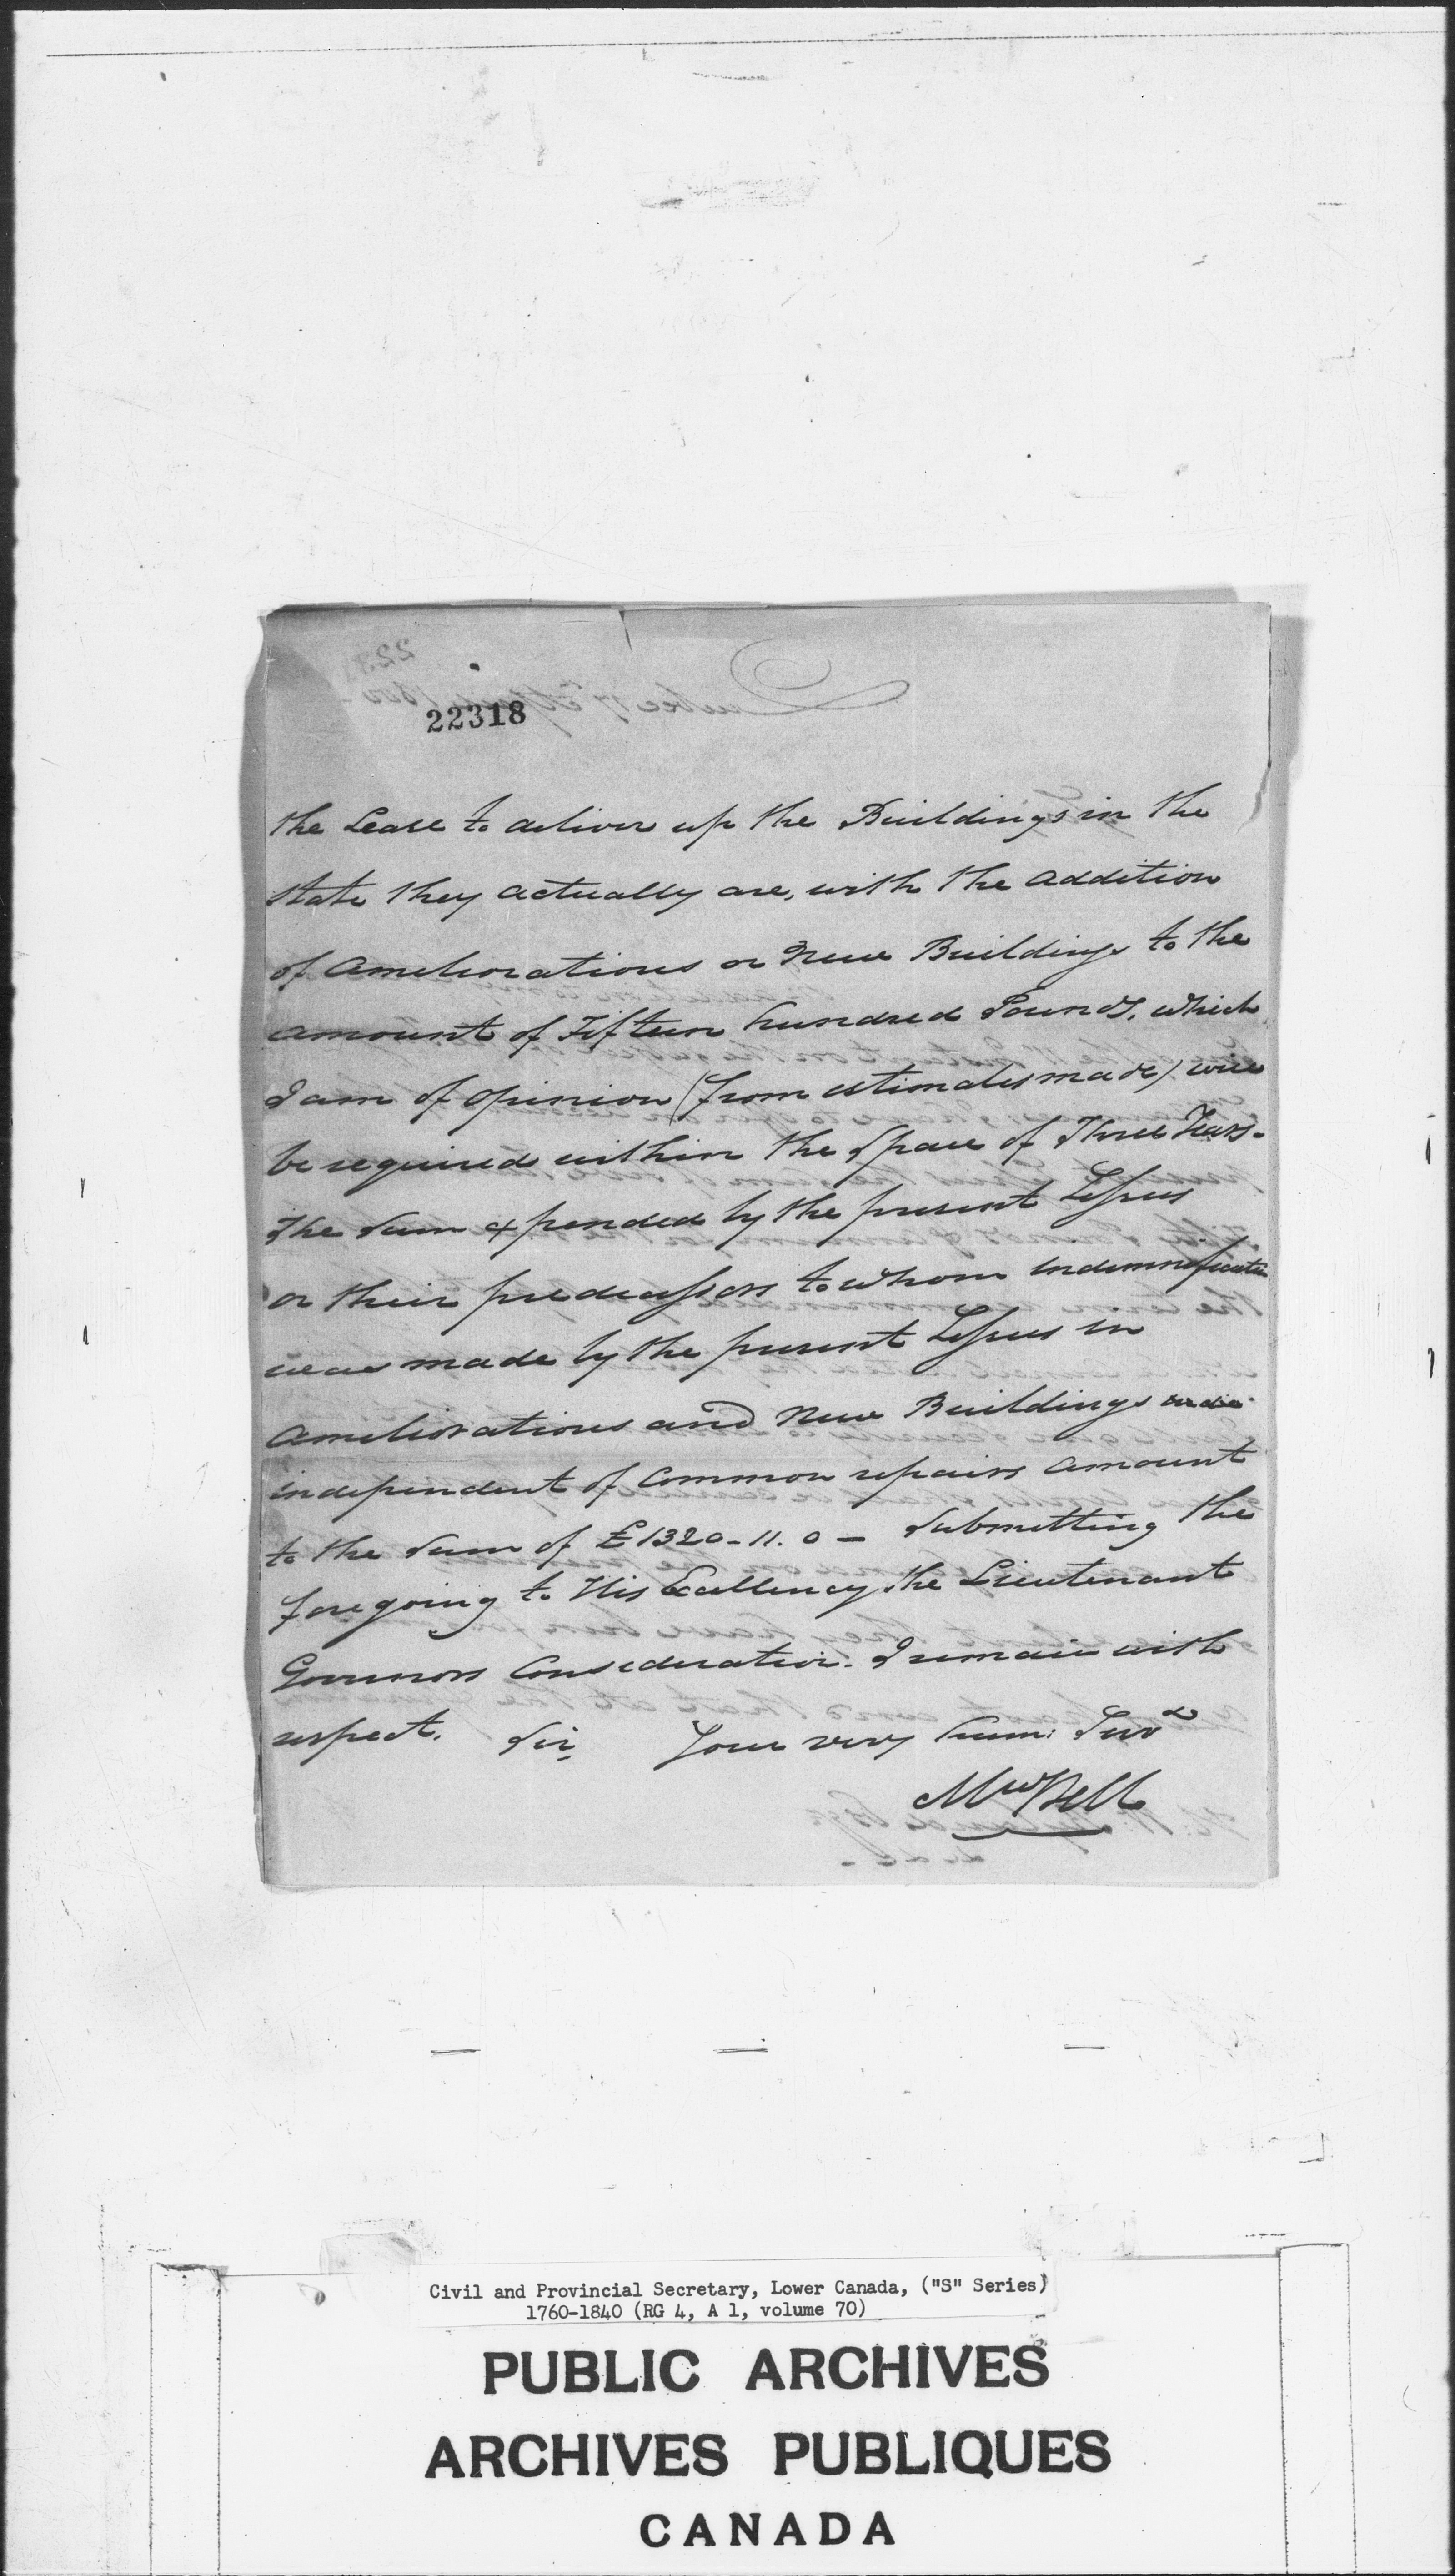 22318
the Lease to deliver up the Buildings in the
state they actually are, with the addition
of ameliorations or new Buildings to the
amount of Fifteen hundred Pounds, which
I am of opinion (from estimates made) will
be required within the Space of Three Years.
The Sum expended by the present Lessees
or their predecessors to whom indemnification
was made by the present Lessees in
ameliorations and new Buildings
independent of Common repairs amount
to the Sum of £1320-11.0 - Submitting the
foregoing to His Excellency the Lieutenant
Governors Consideration. I remain with
respect. Sir Your very hum: Serv
Mw Bell
Civil and Provincial Secretary, Lower Canada, ("S" Series)
1760-1840 (RG 4, A 1, volume 70)
PUBLIC ARCHIVES
ARCHIVES PUBLIQUES
CANADA